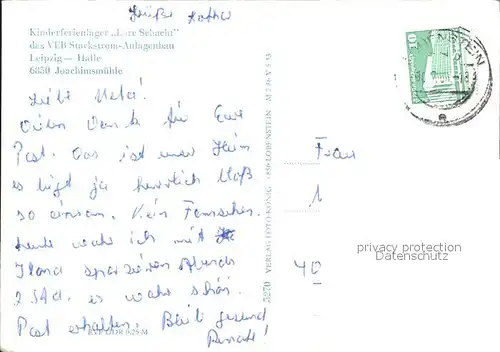 Grüße Käthe
Kinderferienlager „Lore Schacht"
des VEB Starkstrom-Anlagenbau
Leipzig — Halle
6850 Joachimsmühle
Liebe Meta!
Vielen Dank für Eure
Post. Das ist unser Heim
es liegt ja herrlich bloß
so einsam. Kein Fernsehen.
heute wahr ich mit
Hand spazieren
2 Std. es wahr schön.
Post erhalten. Bleib gesund
EVP DDR 0,25 M
5270 VERLAG FOTO-KÖNIG, 1850 LOBENSTEIN
10
ENSTEIN
Frau
1
40
privacy protection
Datenschutz